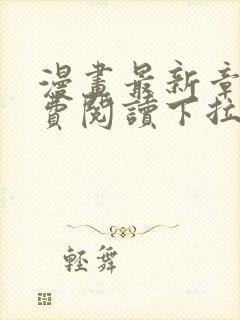 漫畫最新章
費閱讀下拉
輕舞